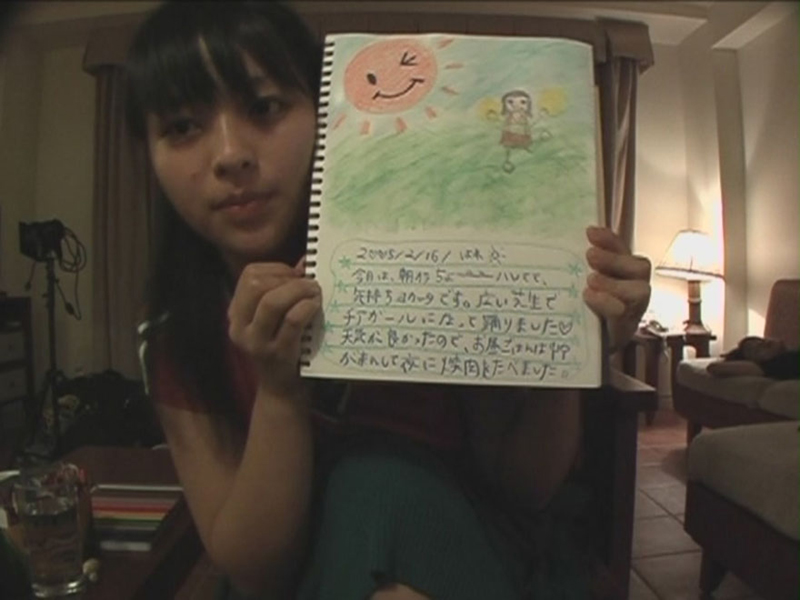 2005/2/16/ はれ
今日は、朝からハレてて、
気持ちよカータです。広い芝生で
チアガールになって踊りました♡
天気が良かったので、お昼ごはんは
がまんして夜に焼肉をたべました。